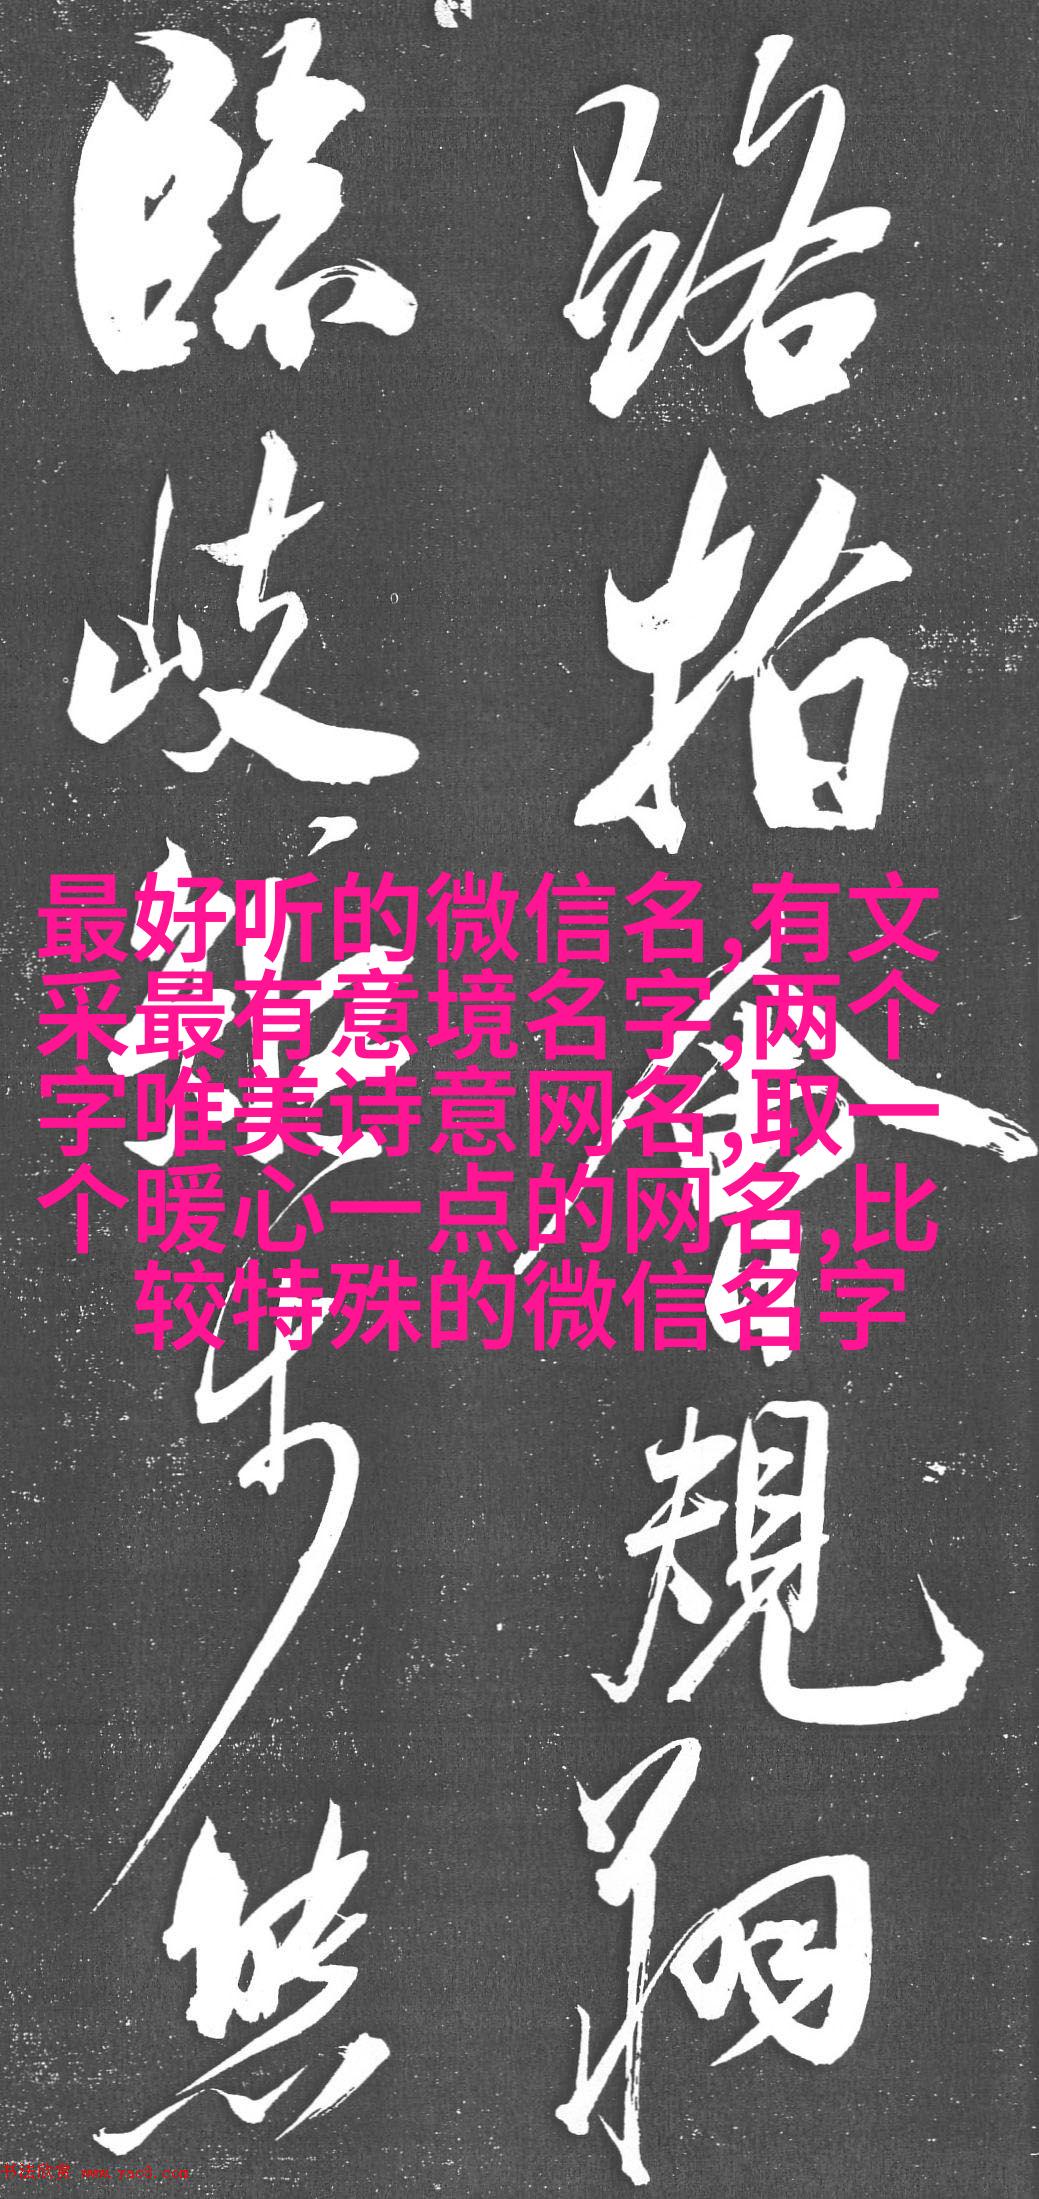 最好听的微信名,有文
采最有意境名字,两个
字唯美诗意网名,取一
个暖心一点的网名,比
较特殊的微信名字
路指會規翔
臨岐
书法欣赏 www.yac8.com